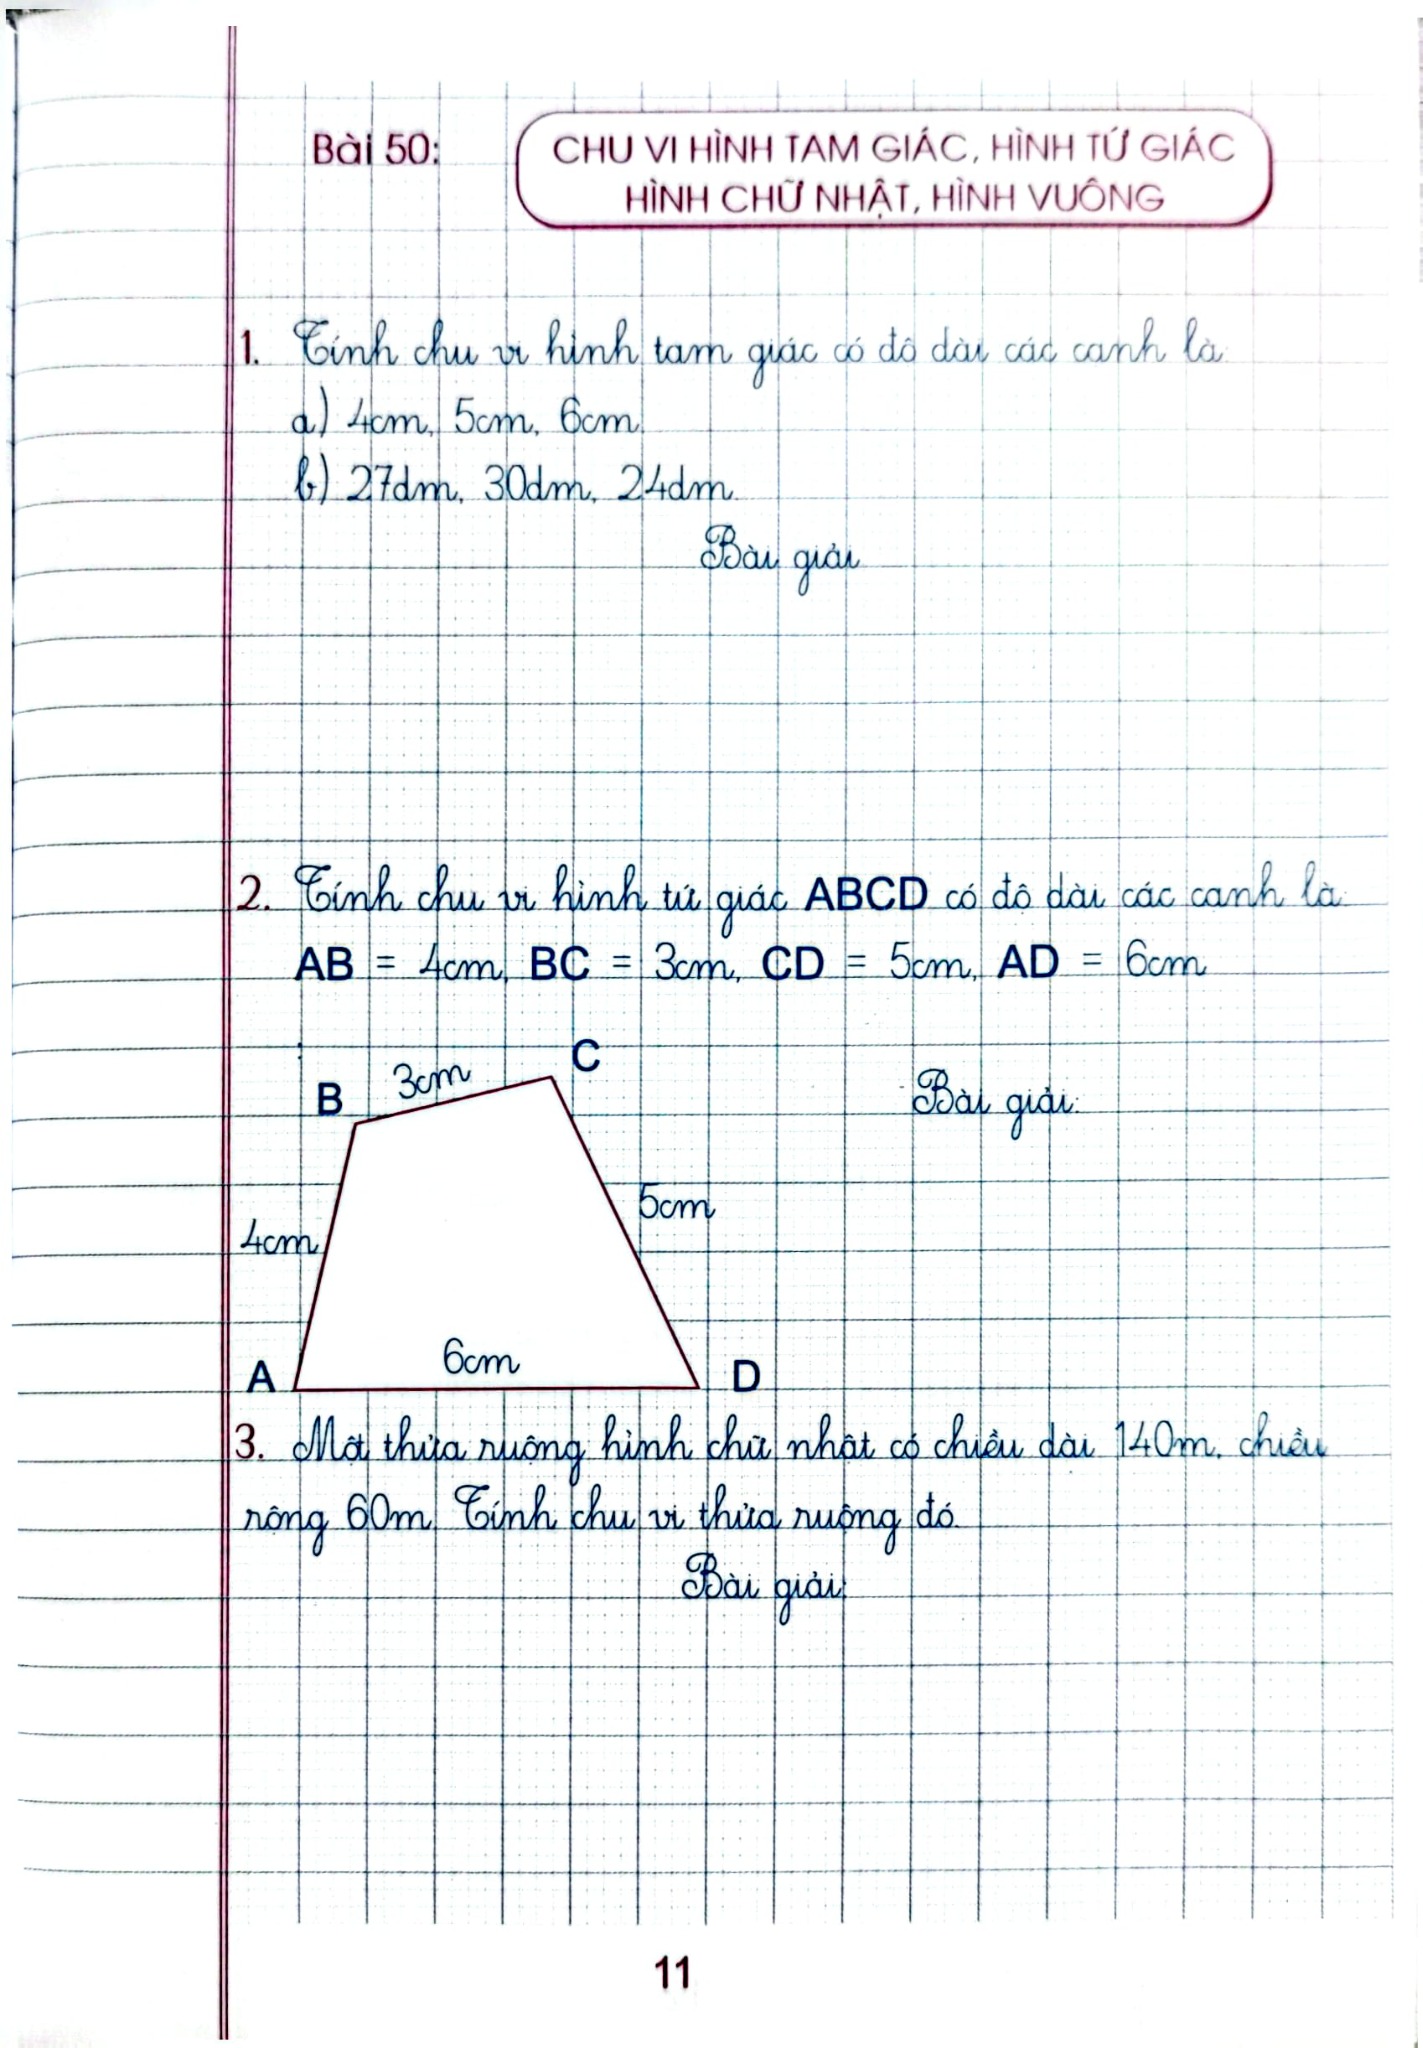 Bài 50:
CHU VI HÌNH TAM GIÁC, HÌNH TỨ GIÁC
HÌNH CHỮ NHẬT, HÌNH VUÔNG
1. Tính chu vi hình tam giác có độ dài các cạnh là:
a) 4cm, 5cm, 6cm
b) 27dm, 30dm, 24dm
Bài giải
2. Tính chu vi hình tứ giác ABCD có độ dài các cạnh là:
AB = 4cm, BC = 3cm, CD = 5cm, AD = 6cm
C
3cm
B
Bài giải:
5cm
4cm
6cm
A
D
3. Một thửa ruộng hình chữ nhật có chiều dài 140m, chiều
rộng 60m. Tính chu vi thửa ruộng đó.
Bài giải:
11